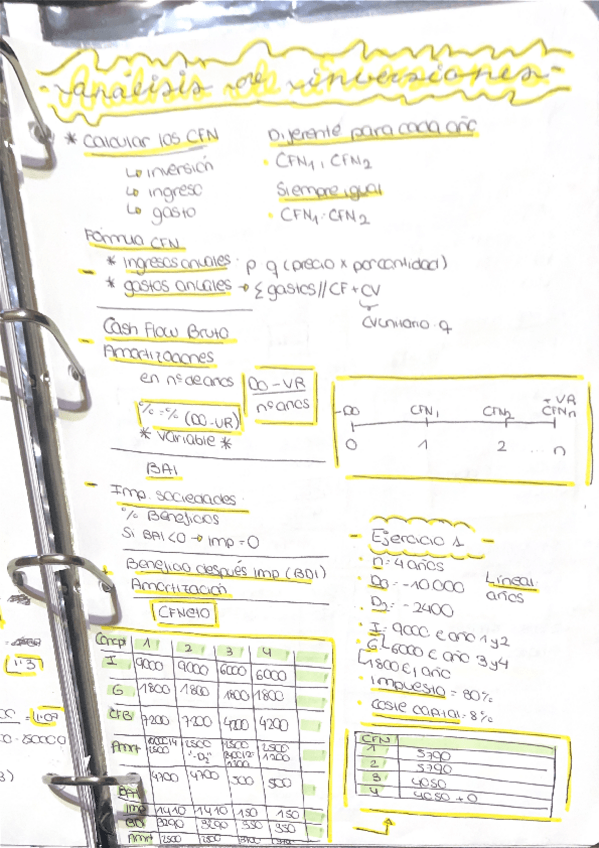 Análisis de inversiones
* Calcular los CFN
↳ inversión
↳ ingreso
↳ gasto
Diferente para cada año
· CFN1, CFN2
Siempre igual
· CFN1 = CFN2
Fórmula CFN
* Ingresos anuales · p q (precio x por cantidad)
* gastos anuales → Σ gastos // CF + CV
CVunitario · q
- Cash Flow Bruto
Amortizaciones
en nº de años
DO - VR
nº años
% = % (DO - VR)
* Variable *
-DO CFN1 CFN2 + VR CFNn
0 1 2 ... n
BAI
- Imp. sociedades
% Beneficios
Si BAI < 0 → imp = 0
+ Beneficio después imp (BDI)
Amortización
CFNeto
- Ejercicio 1 -
· n = 4 años
· D0 = -10000 Lineal
años
· D2 = -2400
· I = 9000 € año 1 y 2
↳ 6000 € año 3 y 4
G
1800 € / año
· Impuesto = 30%
· Coste capital = 8%
Concep 1 2 3 4
I 9000 9000 6000 6000
G 1800 1800 1800 1800
CFB 7200 7200 4200 4200
Amrt 2500 2500 2500 2500
1200 1200
BAI 4700 4700 500 500
Imp 1410 1410 150 150
BDI 3290 3290 350 350
Amrt 2500 2500 3700 3700
CFN
1 5790
2 5790
3 4050
4 4050 + 0